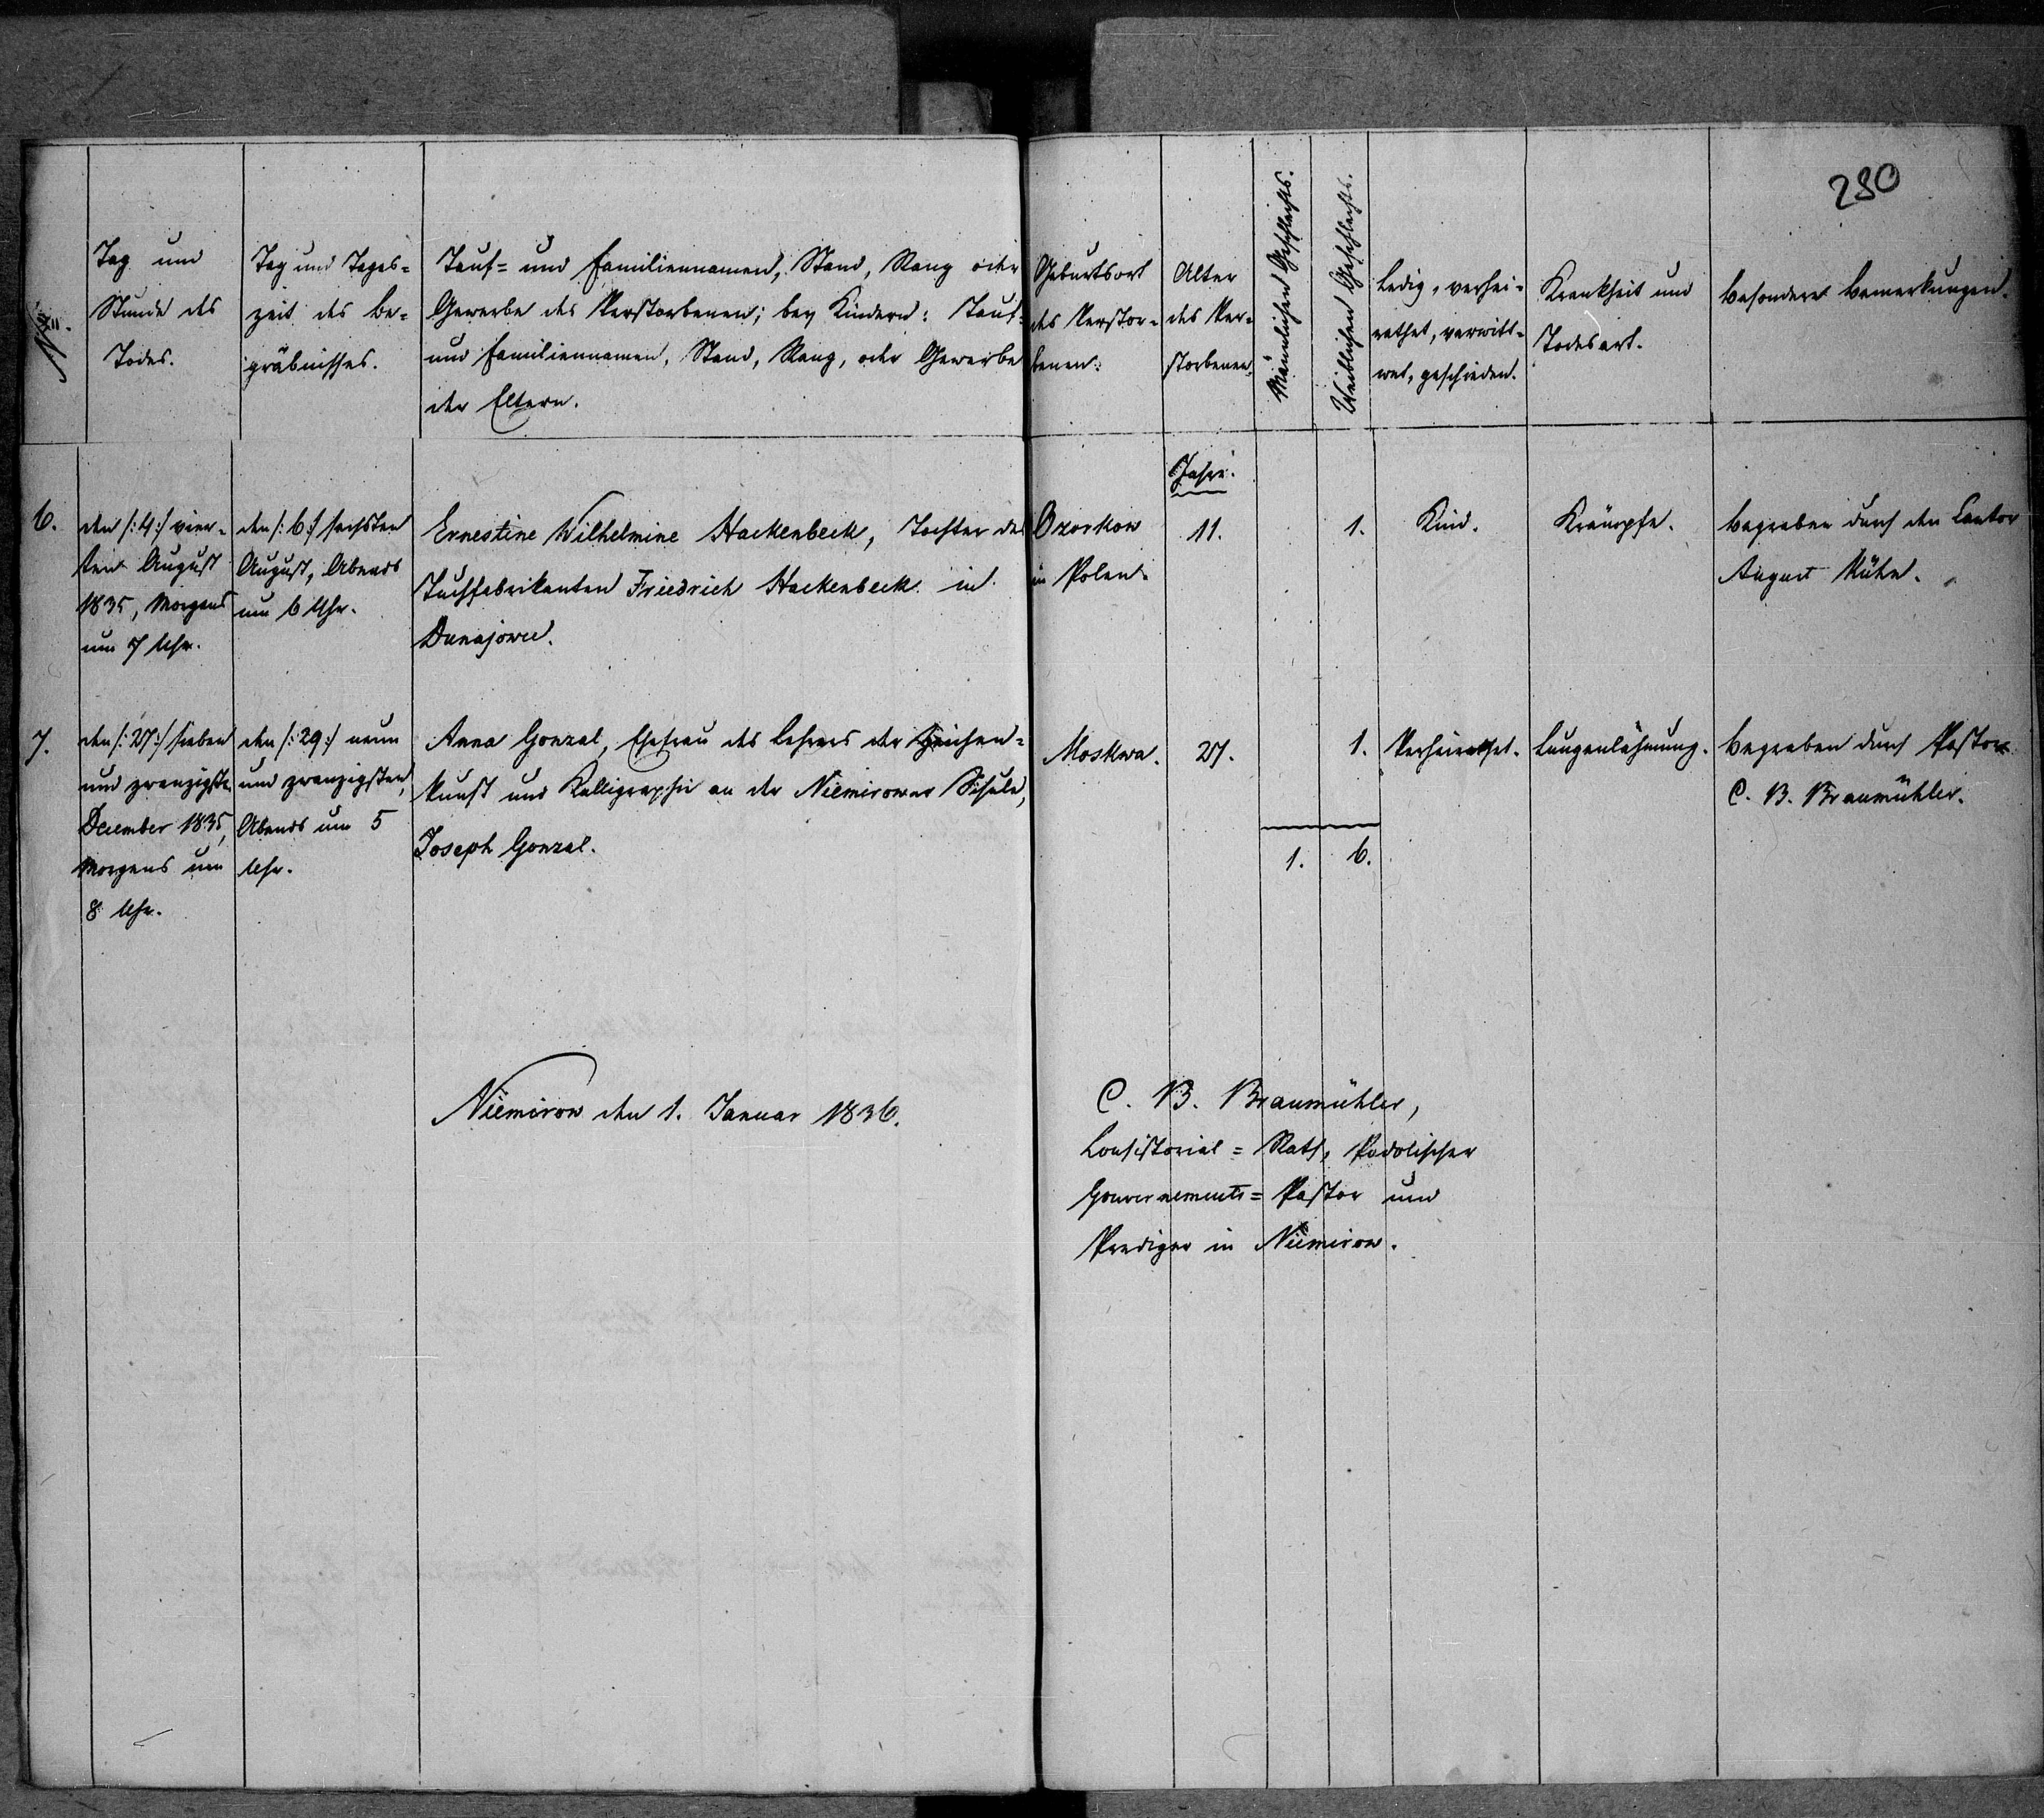 280
Nro.
Tag und
Stunde des
Todes.
Tag und Tages=
zeit des Be=
gräbnisses.
Tauf= und Familiennamen, Stand, Rang oder
Gewerbe des Verstorbenen; bey Kindern: Tauf=
und Familiennamen, Stand, Rang, oder Gewerbe
der Eltern.
Geburtsort
des Verstor=
benen.
Alter
des Ver=
storbenen.
Männlichen Geschlechts.
Weiblichen Geschlechts.
Ledig, verhei=
rathet, verwitt=
wet, geschieden.
Krankheit und
Todesart.
Besondere Bemerkungen.
6.
den /:4:/ vier=
ten August
1835, Morgens
um 7 Uhr.
den /:6:/ sechsten
August, Abends
um 6 Uhr.
Ernestine Wilhelmine Hackenbeck, Tochter des
Tuchfabrikanten Friedrich Hackenbeck in
Dunajowce.
Ozorkow
in Polen.
Jahre.
11.
1.
Kind.
Krämpfe.
Begraben durch den Cantor
August Kühn.
7.
den /:27:/ sieben
und zwanzigsten
December 1835,
Morgens um
8 Uhr.
den /:29:/ neun
und zwanzigsten,
Abends um 5
Uhr.
Anna Gonzal, Ehefrau des Lehrers der Zeichen=
kunst und Kalligraphie an der Niemirower Schule,
Joseph Gonzal.
Moskwa.
27.
1.
Verheirathet.
Lungenlähmung.
Begraben durch Pastor
C. B. Braumühler.
1. 6.
Niemirow den 1. Januar 1836.
C. B. Braumühler,
Consistorial=Rath, Podolischer
Gouvernements=Pastor und
Prediger in Niemirow.